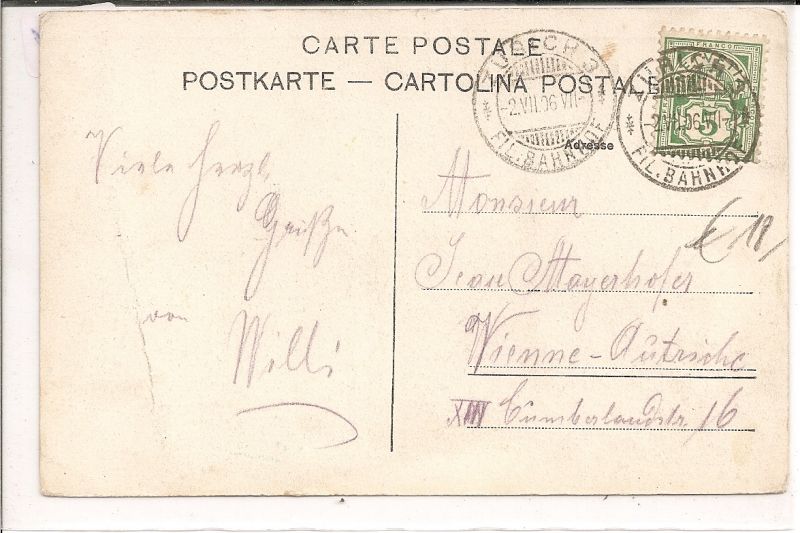 CARTE POSTALE
POSTKARTE — CARTOLINA POSTALE
ZÜRICH 3
-2.VII.06.VII-
FIL. BAHNHOF
FRANCO
5
-2.VII.06.VII-
FIL. BAHNHOF
Adresse
Viele herzl.
Grüße
von
Willi
Monsieur
Jean Mayerhofer
Wienne-Autriche
XIII Cumberlandstr. 16